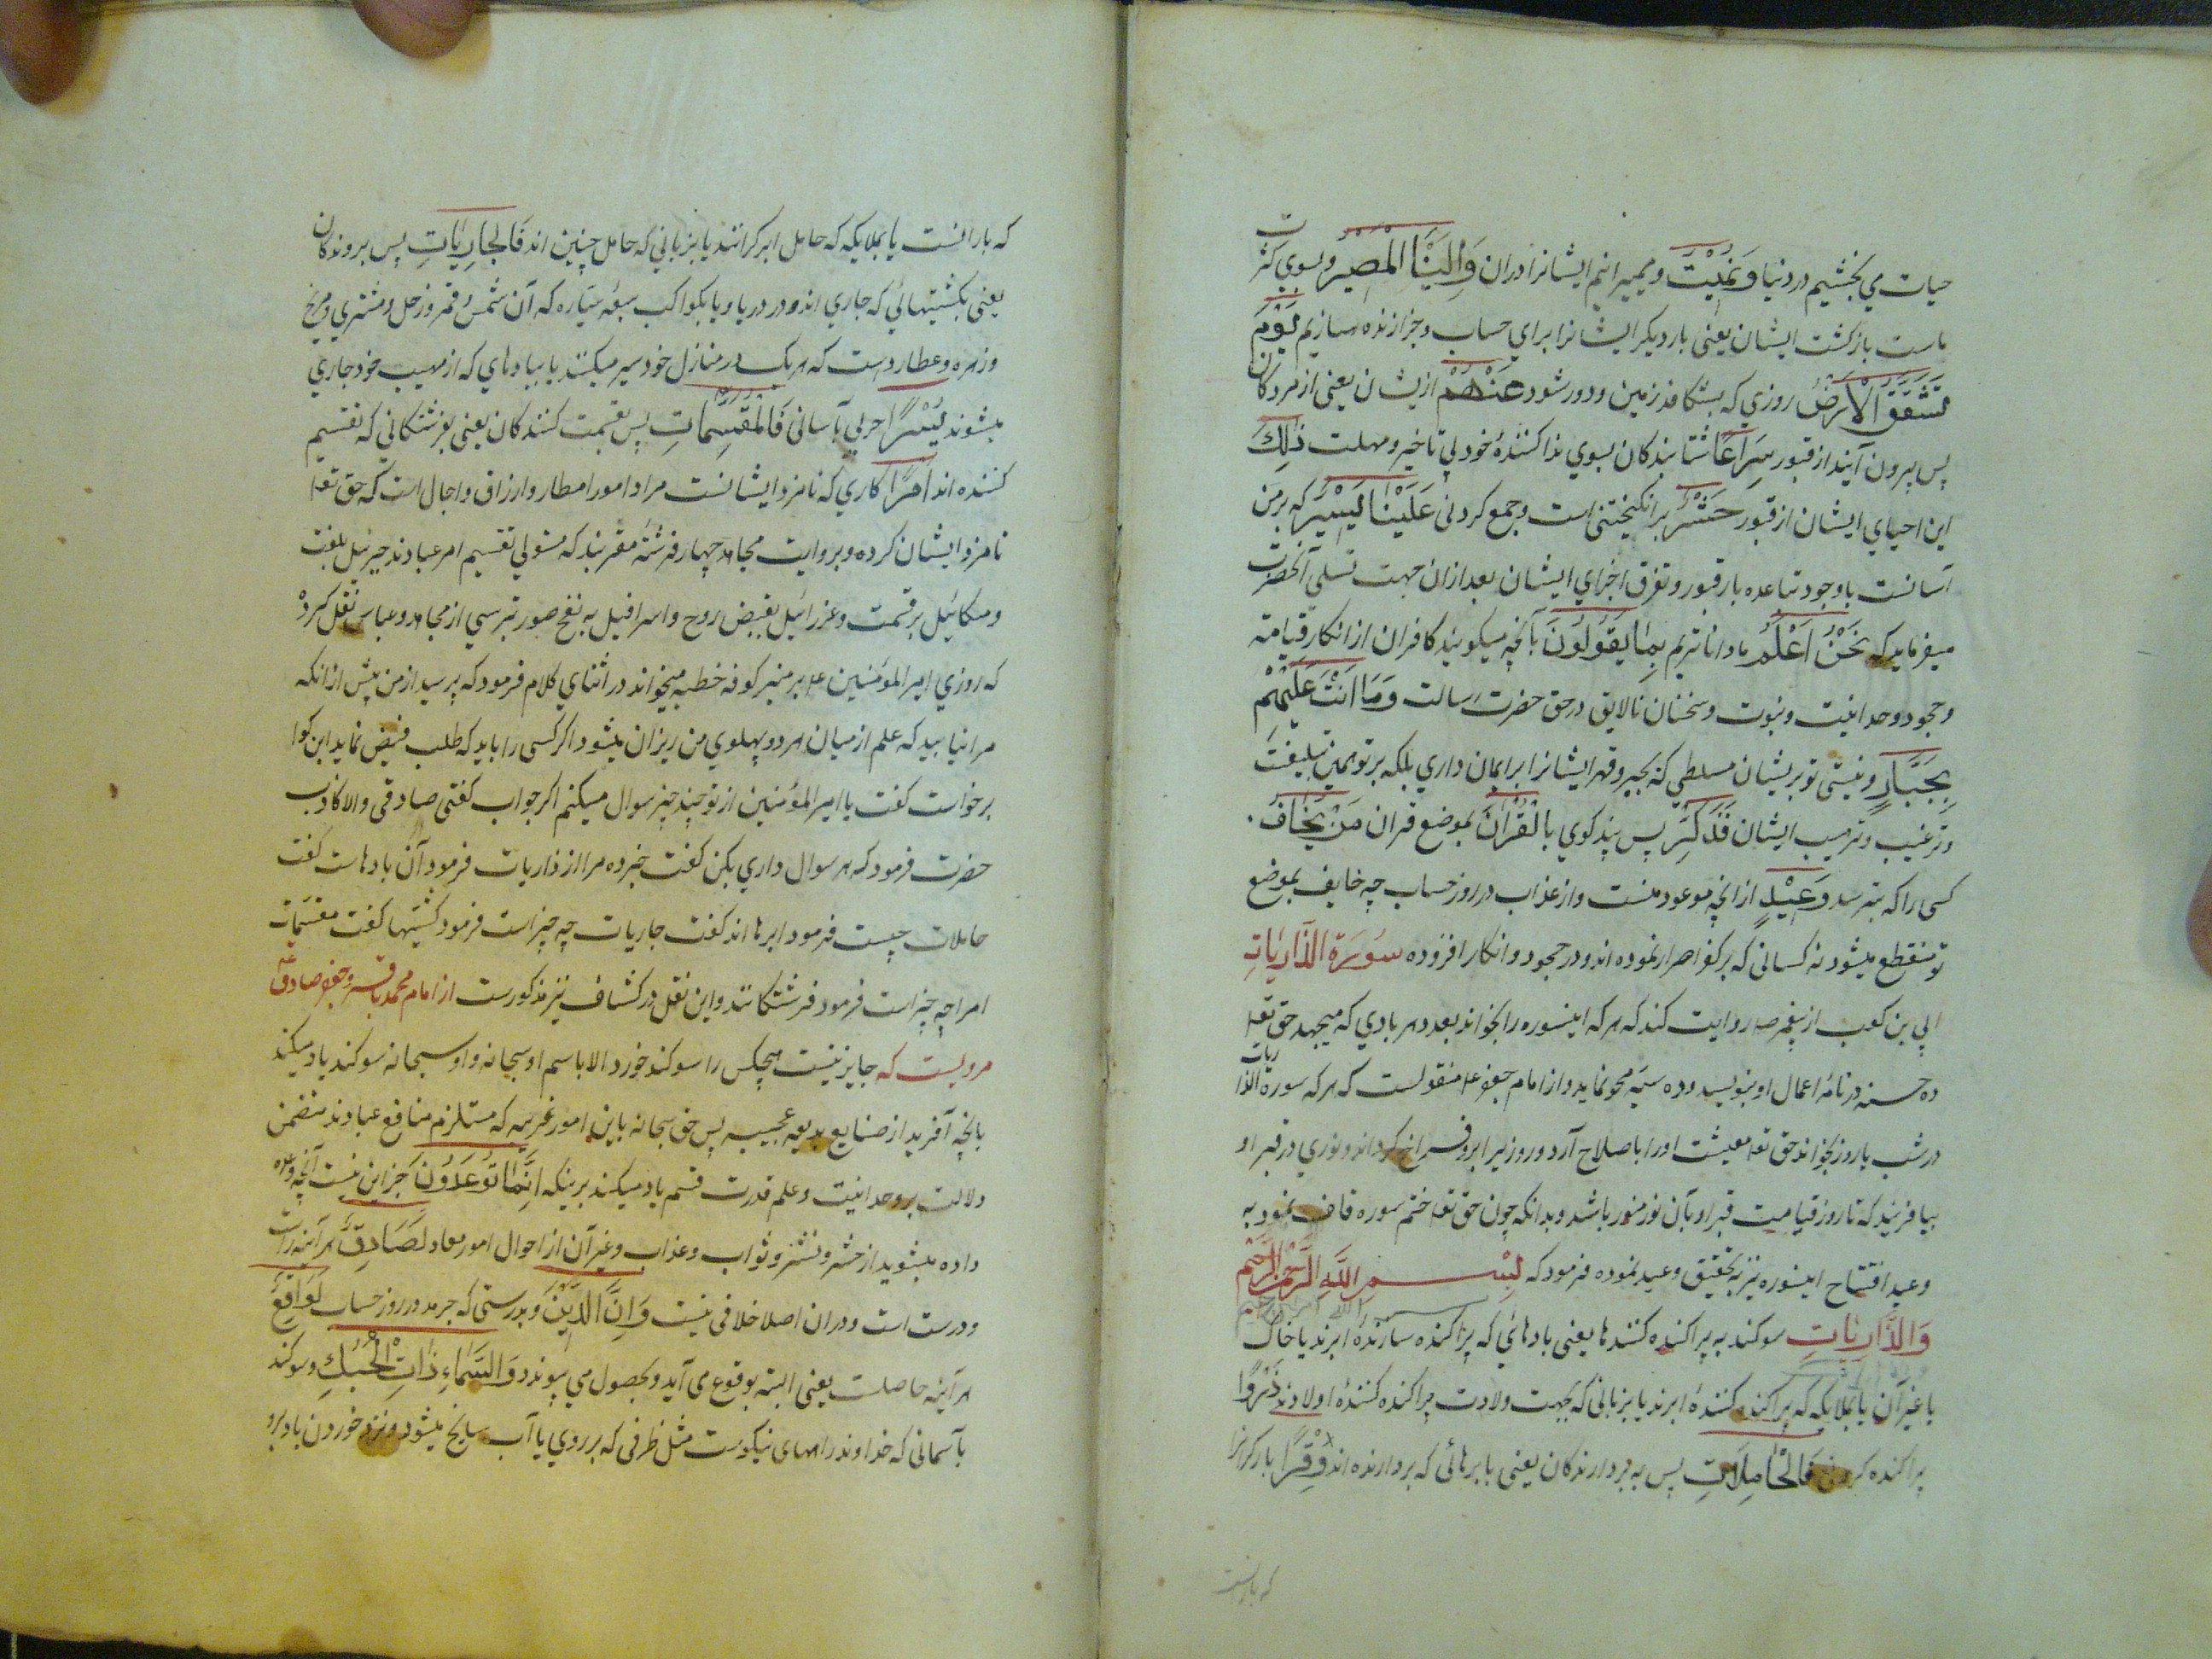 حیات می بخشیم در دنیا وَنُمِیْتُ و میمیرانیم ایشانرا دران وَاِلَیْنَا الْمَصِیْرُ و بسوی
ماست بازکشت ایشان یعنی بار دیکر ایشانرا برای حساب و جزا زنده میسازیم یَوْمَ
تَشَقَّقُ الْاَرْضُ روزی که بشکافد زمین و دور شود عَنْهُمْ ازیشان یعنی از مردکان
پس بیرون آیند از قبور سِرَاعًا شتابندکان بسوی ندا کنندهٔ خود بی تاخیر و مهلت ذٰلِکَ
این احیای ایشان از قبور حَشْرٌ برانکیختنی است و جمع کردنی عَلَیْنَا یَسِیْرٌ که بر من
آسانست باوجود تباعده بار قبور و تفرق اجزای ایشان بعد ازان جهت تسلی آنحضرت
میفرماید که نَحْنُ اَعْلَمُ ما داناتریم بِمَا یَقُوْلُوْنَ بآنچه میکویند کافران از انکار قیامت
و جحود وحدانیت و نبوت و سخنان نالایق در حق حضرت رسالت وَمَا اَنْتَ عَلَیْهِمْ
بِجَبَّارٍ و نیستی تو بریشان مسلطی که بجبر و قهر ایشانرا بر ایمان داری بلکه بر تو همین تبلیغت
و ترغیب و ترهیب ایشان فَذَکِّرْ پس پند کوی بِالْقُرْاٰنِ بموضع قران مَنْ یَخَافُ
کسی را که بترسد وَعِیْدِ از انچه موعود منست و از عذاب در روز حساب چه خایف بموضع
تو منقطع میشود نه کسانی که بر کفر اصرار نموده اند و در جحود و انکار افزوده سُوْرَةُ الذَّارِیَاتِ
ابی بن کعب از پیغمبر ص روایت کند که هر که اینسوره را بخواند بعدد هر بادی که میجهد حق تعا
ده حسنه در نامهٔ اعمال او بنویسد و ده سیّه محو نماید و از امام جعفر ع منقولست که هر که سوره الذاریات
در شب یا روز بخواند حق تعا معیشت او را باصلاح آرد و روزی را برو فراخ کرداند و نوری در قبر او
بیافریند که تا روز قیامت قبر او بآن نور منور باشد و بدانکه چون حق تعا ختم سوره قاف نمود به
وعید افتتاح اینسوره نیز به تحقیق وعید نموده فرمود که بِسْمِ اللّٰهِ الرَّحْمٰنِ الرَّحِیْمِ
وَالذَّارِیَاتِ سوکند به پراکنده کنندها یعنی بادهائی که پراکنده سازندهٔ ابرند یا خاک
یا غیر آن یا بملایکه که پراکنده کنندهٔ ابرند یا بزنانی که بجهت ولادت پراکنده کنندهٔ اولادند ذَرْوًا
پراکنده کردنی فَالْحَامِلَاتِ پس به بردارندکان یعنی بابرهائی که بردارنده اند وِقْرًا بار کرانرا
که بارانست
که بارانست یا بملایکه که حامل ابر کرانند یا بزنانی که حامل چنین اند فَالْجَارِیَاتِ پس بروندکان
یعنی بکشتیهائی که جاری اند در دریا و یا بکواکب سبعه سیاره که آن شمس و قمر و زحل و مشتری و مریخ
و زهره و عطاردست که هر یک در منازل خود سیر میکنند یا ببادهای که از مهیب خود جاری
میشوند یُسْرًا جریی بآسانی فَالْمُقَسِّمَاتِ پس بقسمت کنندکان یعنی بفرشتکانی که تقسیم
کننده اند اَمْرًا کاری که نامزد ایشانست مراد امور امطار و ارزاق و اجال است که حق تعا
نامزد ایشان کرده و بروایت مجاهد چهار فرشته مقربند که متولی تقسیم امر عبادند جبرئیل بلغت
و میکائیل بر قسمت و عزرائیل بقبض روح و اسرافیل به نفخ صور تبرسی از مجاهد و عباس نقل کرده
که روزی امیر المؤمنین ع بر منبر کوفه خطبه میخواند در اثنای کلام فرمود که بپرسید از من پیش از انکه
مرا نیابید که علم از میان هر دو پهلوی من ریزان میشود اکر کسی را باید که طلب فیض نماید ابن کوا
برخواست کفت یا امیر المؤمنین از تو چند چیز سوال میکنم اکر جواب کفتی صادقی والا کاذب
حضرت فرمود که هر سوال داری بکن کفت خبر ده مرا از ذاریات فرمود آن بادهاست کفت
حاملات چیست فرمود ابرها اند کفت جاریات چه چیز است فرمود کشتیها کفت مقسمات
امرا چه چیز است فرمود فرشتکانند و این نقل در کشاف نیز مذکورست از امام محمد باقر و جعفر صادق ع
مرویست که جایز نیست هیچکس را سوکند خورد الا باسم او سبحانه و او سبحانه سوکند یاد میکند
بانچه آفرید از صنایع بدیعه عجیبه پس حق سبحانه باین امور غریبه که مستلزم منافع عبادند متضمن
دلالت بر وحدانیت و علم قدرت قسم یاد میکند برینکه اِنَّمَا تُوْعَدُوْنَ جز این نیست آنچه وعده
داده میشوید از حشر و نشر و ثواب و عذاب و غیر آن از احوال امور معاد لَصَادِقٌ هر آینه راست
و درست است و دران اصلا خلافی نیست وَاِنَّ الدِّیْنَ و بدرستی که جزا در روز حساب لَوَاقِعٌ
هر آینه حاصلت یعنی البته بوقوع می آید و بحصول می پیوندد وَالسَّمَاءِ ذَاتِ الْحُبُکِ و سوکند
بآسمانی که خداوند راههای نیکوست مثل ظرفی که بر روی یا آب سایح میشود و نزد خوردن باد برو